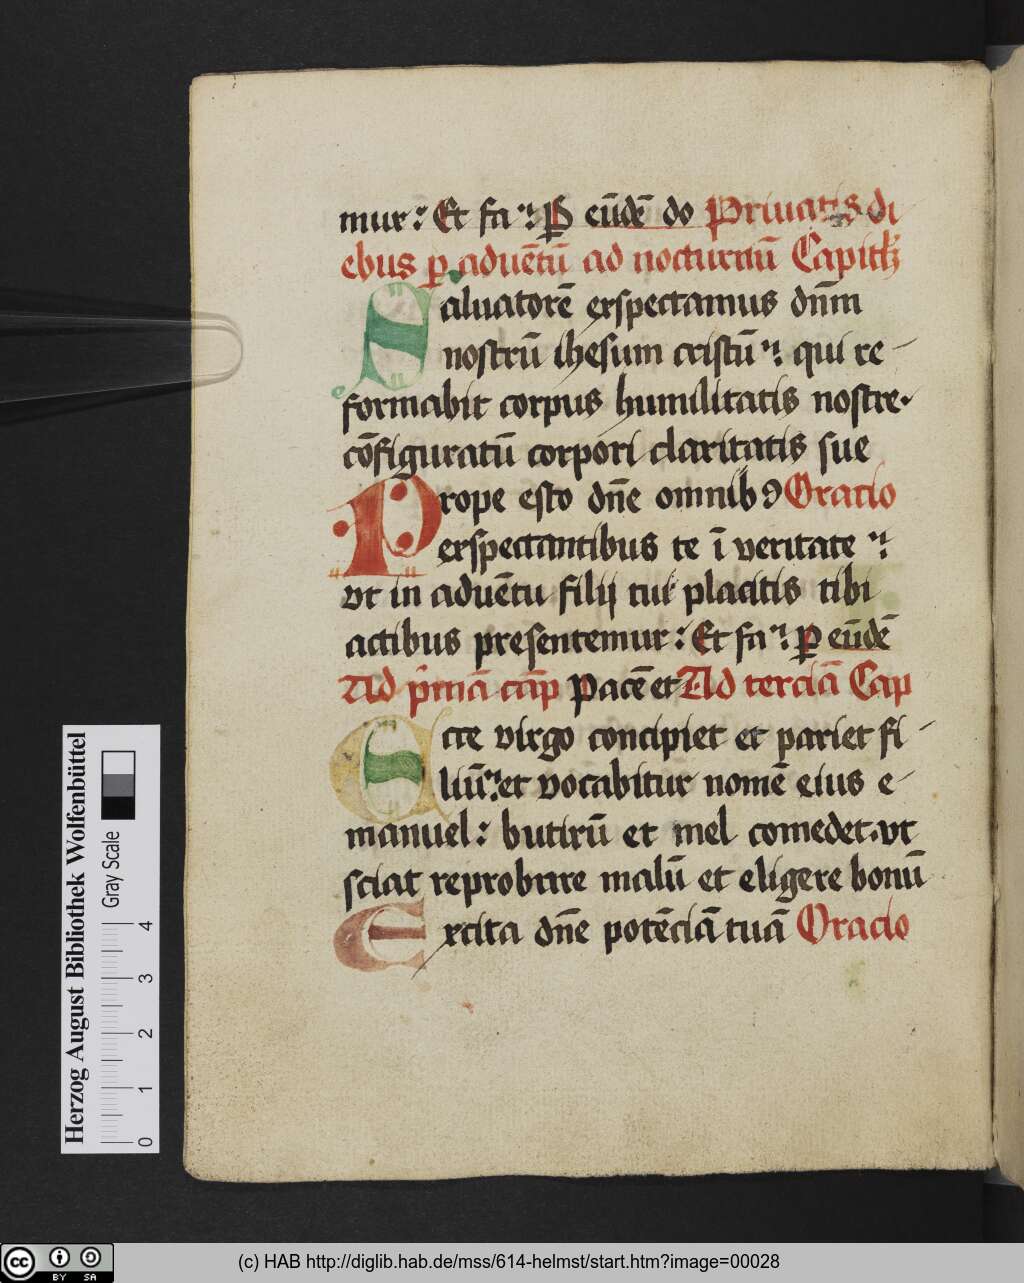 mur: Et fa⁊: P eūdē do Priuatis di
ebus ꝑ aduētū ad nocturnū Capitl
Saluatorē exspectamus dn̄m
nostrū ihesum cristū⁊: qui re-
formabit corpus humilitatis nostre·
cōfiguratū corpori claritatis sue
Prope esto dn̄e omnibꝰ Oracio
exspectantibus te ī veritate⁊:
vt in aduētu filij tui placitis tibi
actibus presentemur: Et fa⁊: ꝑ eūdē
Ad pͥmā cap̄ Pacē et Ad terciā Cap
Ecce virgo concipiet et pariet fi-
liū⁊: et vocabitur nomē eius e-
manuel: butirū et mel comedet· vt
sciat reprobare malū et eligere bonū
Excita dn̄e potēciā tuā Oracio
Herzog August Bibliothek Wolfenbüttel
Gray Scale
0 1 2 3 4
cc BY SA
(c) HAB http://diglib.hab.de/mss/614-helmst/start.htm?image=00028